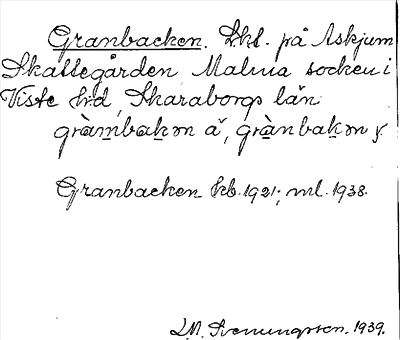 Granbacken. Lht. på Askjum
Skattegården Malma socken i
Viste hd, Skaraborgs län.
gràmbakən ä, grànbakən y.
Granbacken kb. 1921; ml. 1938.
Svenungsson. 1939.